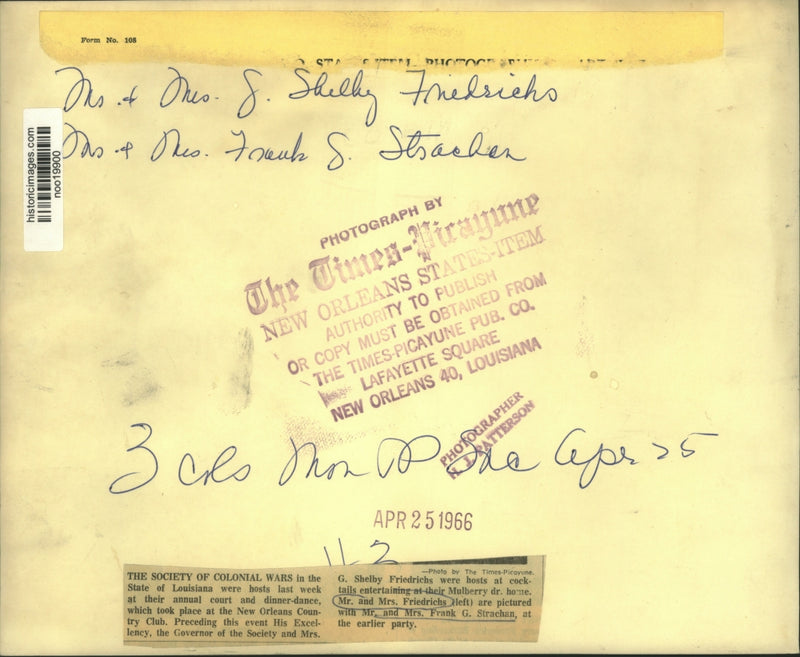 Form No. 108
Mr. & Mrs. G. Shelby Friedrichs
Mr. & Mrs. Frank G. Strachan
historicimages.com
noo19900
PHOTOGRAPH BY
The Times-Picayune
NEW ORLEANS STATES-ITEM
AUTHORITY TO PUBLISH
OR COPY MUST BE OBTAINED FROM
THE TIMES-PICAYUNE PUB. CO.
LAFAYETTE SQUARE
NEW ORLEANS 40, LOUISIANA
PHOTOGRAPHER
PATTERSON
3 cols Mon TP Soc Apr 25
APR 25 1966
—Photo by The Times-Picayune.
THE SOCIETY OF COLONIAL WARS in the
State of Louisiana were hosts last week
at their annual court and dinner-dance,
which took place at the New Orleans Coun-
try Club. Preceding this event His Excel-
lency, the Governor of the Society and Mrs.
G. Shelby Friedrichs were hosts at cock-
tails entertaining at their Mulberry dr. home.
Mr. and Mrs. Friedrichs (left) are pictured
with Mr. and Mrs. Frank G. Strachan, at
the earlier party.